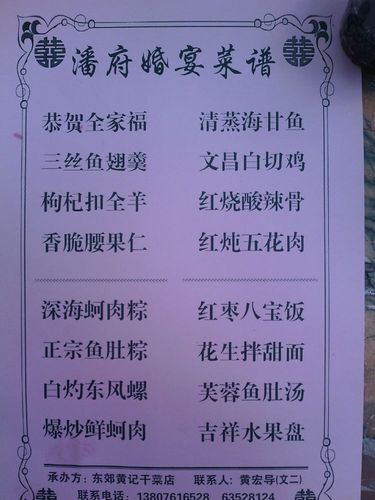 潘府婚宴菜谱
恭贺全家福 清蒸海甘鱼
三丝鱼翅羹 文昌白切鸡
枸杞扣全羊 红烧酸辣骨
香脆腰果仁 红炖五花肉
深海蚵肉粽 红枣八宝饭
正宗鱼肚粽 花生拌甜面
白灼东风螺 芙蓉鱼肚汤
爆炒鲜蚵肉 吉祥水果盘
承办方：东郊黄记干菜店 联系人：黄宏导(文二)
联系电话：13807616528 63528124